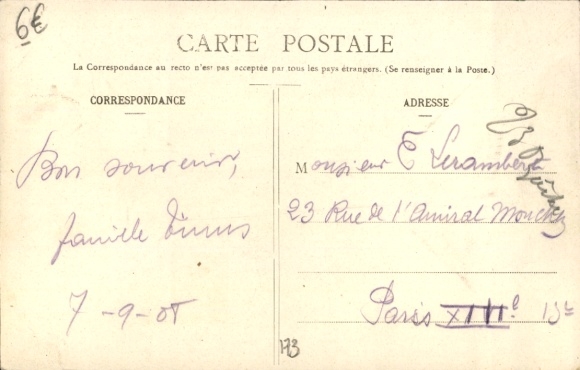 6€
CARTE POSTALE
La Correspondance au recto n'est pas acceptée par tous les pays étrangers. (Se renseigner à la Poste.)
CORRESPONDANCE
Bon souvenir,
famille
7-9-08
ADRESSE
Monsieur E Lerambert
23 Rue de l'Amiral Mouchez
Paris XIIIe 13e
173